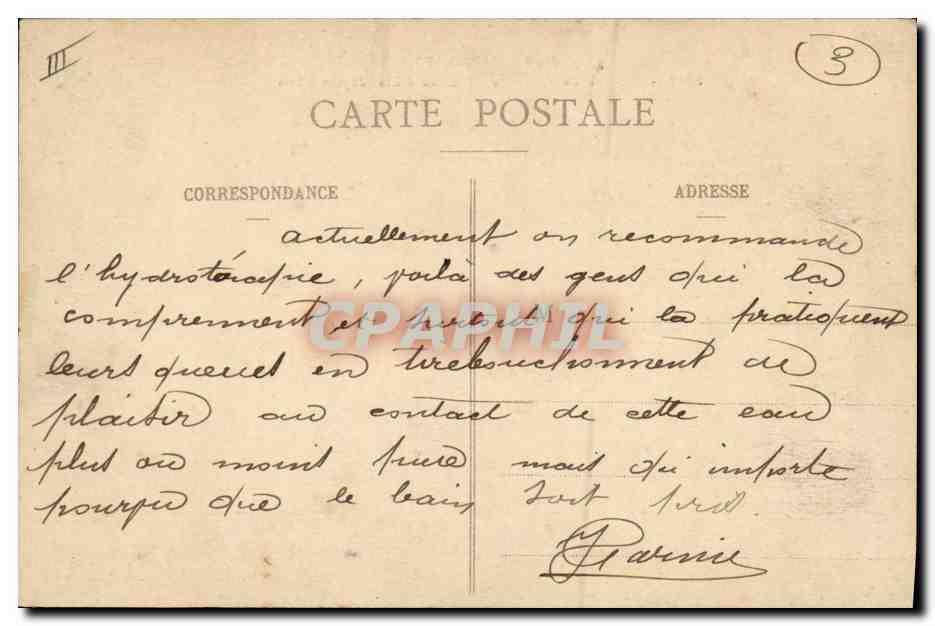 III
3
CARTE POSTALE
CORRESPONDANCE
ADRESSE
actuellement on recommande
l'hydrotérapie, voilà des gens qui la
comprennent et surtout qui la pratiquent
leurs queues en tirebouchonnent de
plaisir au contact de cette eau
plus ou moins pure mais qu'importe
pourvu que le bain soit pris.
CPAPHIL